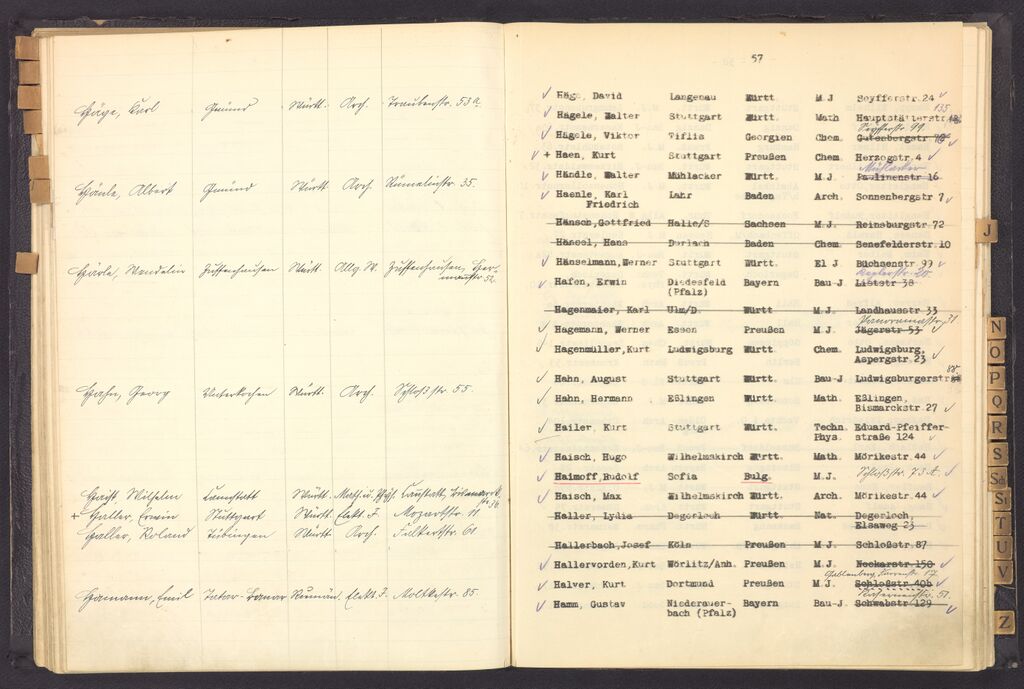 Häge, Karl Gmünd Württ. Arch. Traubenstr. 53a
Hänle, Albert Gmünd Württ. Arch. Rümelinstr. 35.
Härle, Wendelin Zuffenhausen Württ. Allg. W. Zuffenhausen,
Hahn, Georg Unterkochen Württ. Arch. Schloßstr. 55.
Wilhelm Cannstatt Württ. Math. u. Cannstatt,
+ Haller, Erwin Stuttgart Württ. Elekt. J. Mozartstr. 11
Haller, Roland Tübingen Württ. Arch. Falkertstr. 61.
Hamann, Emil Rumän. Elekt. J. Moltkestr. 85.
57
✓ Häge, David Langenau Württ M.J Seyfferstr.24 ✓
135
✓ Hägele, Walter Stuttgart Württ. Math Hauptstätterstr.
Seyfferstr. 99.
✓ Hägele, Viktor Tiflis Georgien Chem. Gutenbergstr
✓ + Haen, Kurt Stuttgart Preußen Chem. Herzogstr.4 ✓
Mühlacker
✓ Händle, Walter Mühlacker Württ. M.J Paulinenstr 16
✓ Haenle, Karl Lahr Baden Arch. Sonnenbergstr 7 ✓
Friedrich
Hänsch,Gottfried Halle/S Sachsen M.J. Reinsburgstr 72
Hänsel, Hans Durlach Baden Chem Senefelderstr.10
✓ Hänselmann,Werner Stuttgart Württ. El J. Büchsenstr 99 ✓
Keplerstr. 20.
✓ Hafen, Erwin Diedesfeld Bayern Bau-J Liststr 38
(Pfalz)
Hagenmaier, Karl Ulm/D. Württ M.J. Landhausstr 33
Panoramastr. 31
✓ Hagemann, Werner Essen Preußen M.J. Jägerstr 53 ✓
✓ Hagenmüller,Kurt Ludwigsburg Württ. Chem. Ludwigsburg,
Aspergstr 23 ✓
88.
✓ Hahn, August Stuttgart Württ. Bau-J Ludwigsburgerstr
✓ Hahn, Hermann Eßlingen Württ. Math. Eßlingen,
Bismarckstr 27 ✓
✓ Hailer, Kurt Stuttgart Württ. Techn. Eduard-Pfeiffer-
Phys. straße 124 ✓
✓ Haisch, Hugo Wilhelmskirch Württ. Math. Mörikestr 44 ✓
✓ Haimoff,Rudolf Sofia Bulg. M.J. Schloßstr. 73 A. ✓
✓ Haisch, Max Wilhelmskirch Württ. Arch. Mörikestr 44 ✓
Haller, Lydia Degerloch Württ Nat. Degerloch,
Elsaweg 23
Hallerbach,Josef Köln Preußen M J. Schloßstr 87
✓ Hallervorden,Kurt Wörlitz/Anh. Preußen M J. Neckarstr 150 ✓
Gablenberg, 17.
✓ Halver, Kurt Dortmund Preußen M J. Schloßstr 40b ✓
51.
✓ Hamm, Gustav Niederauer- Bayern Bau-J. Schwabstr 129 ✓
bach (Pfalz)
J
N
O
P
Q
R
S
Sch
S
T
U
V
Z